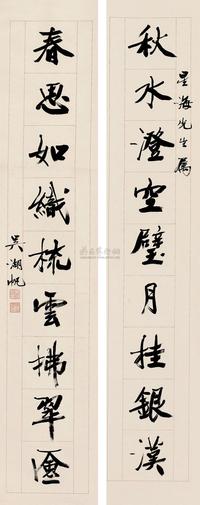 秋水澄空璧月挂銀漢
星海先生屬
春思如織梳雲拂翠奩
吳湖帆